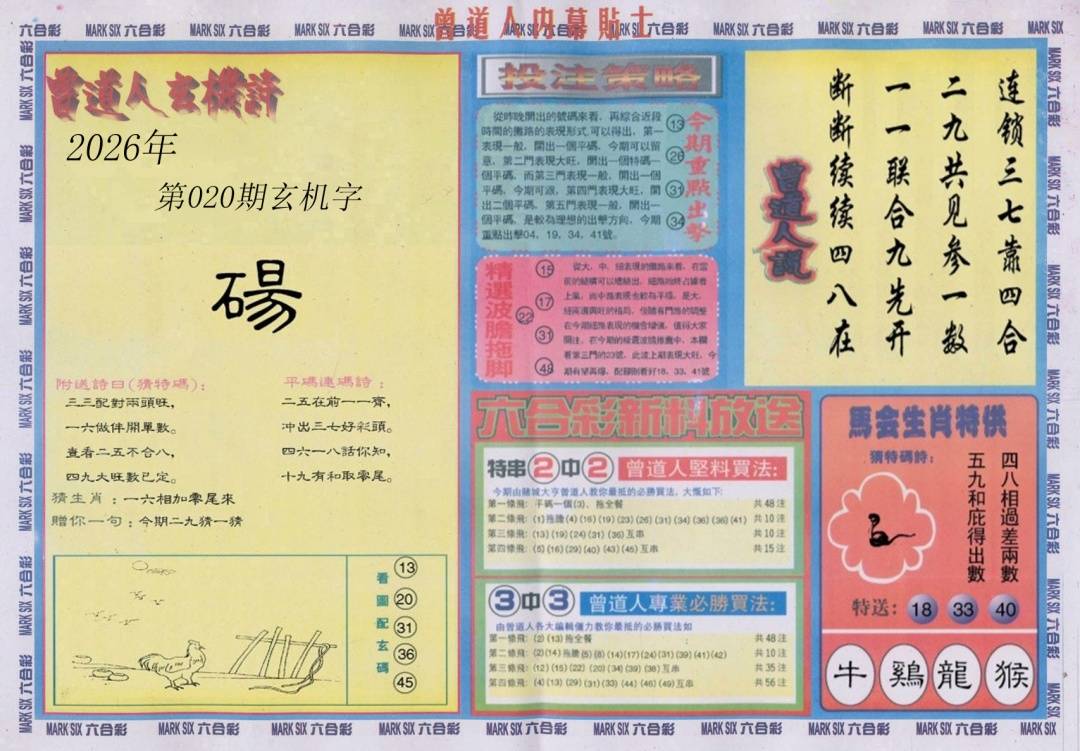 曾道人内幕貼士
MARK SIX 六合彩
曾道人玄機詩
2026年
第020期玄机字
碭
附送詩曰(猜特碼):
三三配對兩頭旺，
一六做伴開單數。
查看二五不合八，
四九大旺數已定。
平碼連碼詩:
二五在前一一齊，
冲出三七好彩頭。
四六一八話你知，
十九有和取零尾。
猜生肖:一六相加零尾來
贈你一句:今期二九猜一猜
看圖配玄碼
13
20
31
36
45
投注策略
從昨晚開出的號碼來看，再綜合近段
時間的攤路的表現形式,可以得出，第一
表現一般，開出一個平碼，今期可以留
意，第二門表現大旺，開出一個特碼一
個平碼，而第三門表現一般，開出一個平
碼，今期可派，第四門表現大旺，開
出二個平碼，第五門表現一般，開出一
個平碼，是較為理想的出擊方向，今期
重點出擊04，19，34，41號。
13
26
31
34
今期重點出擊
精選波膽拖脚
15
17
22
31
48
在今期細攤表現的機會增強，值得大家
看第三門的23號，此波上期表現大旺，今
期有望再爆，配腳則看好18，33，41號
曾道人說
连锁三七靠四合
二九共见参一数
一一联合九先开
断断续续四八在
六合彩新料放送
特串2中2 曾道人堅料買法:
今期由賭城大亨曾道人教你最抵的必勝買法，大慨如下:
第一條飛: 平碼一個(3)，拖全餐 共48注
第二條飛: (1)拖膽(4)(16)(19)(23)(26)(31)(34)(36)(36)(41) 共10注
第三條飛: (13)(19)(24)(31)(36)互串 共10注
第四條飛: (5)(16)(29)(40)(43)(45)互串 共15注
3中3 曾道人專業必勝買法:
由曾道人各大編輯僵力教你最抵的必勝買法如
第一條飛: (2)(13)拖全餐 共48注
第二條飛: (2)(14)拖膽(5)(8)(14)(17)(24)(31)(39)(41)(42) 共10注
第三條飛: (12)(15)(22)(20)(34)(39)(38)互串 共35注
第四條飛: (4)(13)(29)(31)(33)(44)(46)(49)互串 共56注
馬会生肖特供
猜特碼詩:
四八相過差兩數
五九和庇得出數
特送: 18 33 40
牛 鷄 龍 猴